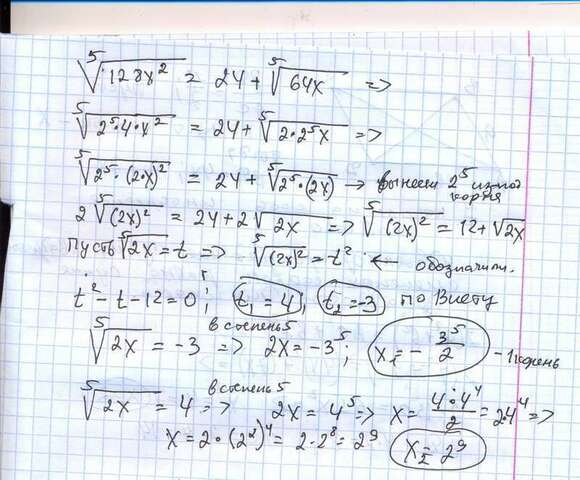 ⁵√128x² = 24 + ⁵√64x =>
⁵√2⁵·4·x² = 24 + ⁵√2·2⁵x =>
⁵√2⁵·(2·x)² = 24 + ⁵√2⁵·(2x) → вынесем 2⁵ из под корня
2 ⁵√(2x)² = 24 + 2 ⁵√2x => ⁵√(2x)² = 12 + √2x
Пусть ⁵√2x = t => ⁵√(2x)² = t² ← обозначили.
t² - t - 12 = 0; t₁ = 4; t₂ = -3 по Виету
⁵√2x = -3 в степень 5 => 2x = -3⁵; x₁ = - 3⁵/2 - 1 корень
⁵√2x = 4 => в степень 5 2x = 4⁵ => x = 4·4⁴/2 = 2·4⁴ =>
x = 2·(2²)⁴ = 2·2⁸ = 2⁹ x₂ = 2⁹